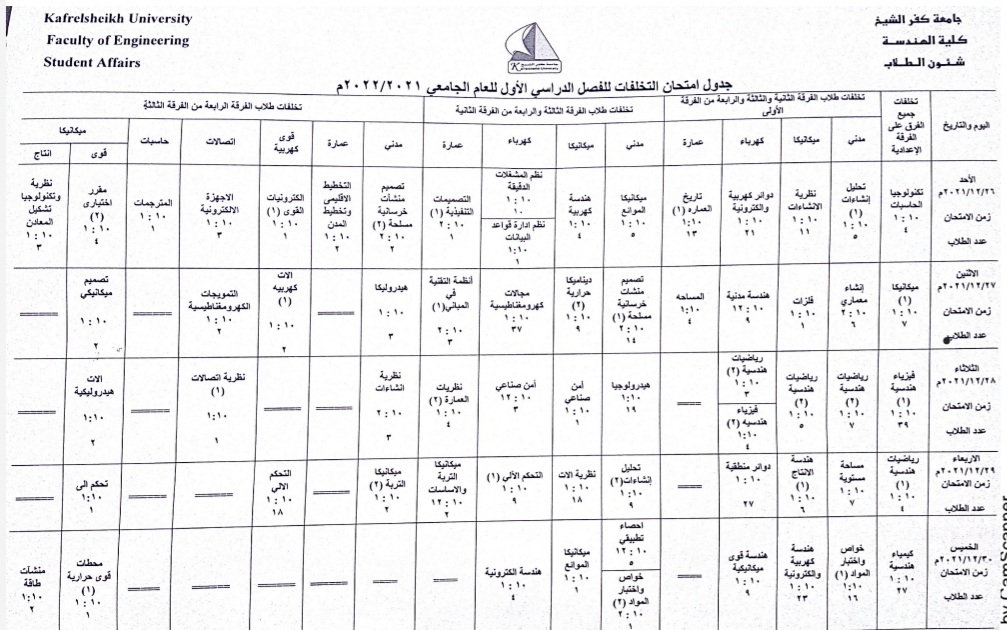 Kafrelsheikh University
Faculty of Engineering
Student Affairs
جامعة كفر الشيخ
كلية الهندسة
شئون الطلاب
جدول امتحان التخلفات للفصل الدراسي الأول للعام الجامعي ٢٠٢٢/٢٠٢١م
اليوم والتاريخ
تخلفات جميع الفرق على الفرقة الإعدادية
تخلفات طلاب الفرقة الثانية والثالثة والرابعة من الفرقة الأولى
تخلفات طلاب الفرقة الثالثة والرابعة من الفرقة الثانية
تخلفات طلاب الفرقة الرابعة من الفرقة الثالثة
مدني
ميكانيكا
كهرباء
عمارة
مدني
ميكانيكا
كهرباء
عمارة
مدني
عمارة
قوى كهربية
اتصالات
حاسبات
ميكانيكا
قوى
انتاج
الأحد
٢٠٢١/١٢/٢٦م
زمن الامتحان
عدد الطلاب
تكنولوجيا الحاسبات
١:١٠
٤
تحليل إنشاءات (١)
١:١٠
٥
نظرية الانشاءات
١:١٠
١١
دوائر كهربية والكترونية
١:١٠
٢١
تاريخ العماره (١)
١:١٠
١٣
ميكانيكا الموائع
١:١٠
٥
هندسة كهربية
١:١٠
٤
نظم المشغلات الدقيقة
١:١٠
١٠
نظم ادارة قواعد البيانات
١:١٠
١
التصميمات التنفيذية (١)
٢:١٠
١
تصميم منشأت خرسانية مسلحة (٢)
٢:١٠
٢
التخطيط الاقليمى وتخطيط المدن
١:١٠
٢
الكترونيات القوى (١)
١:١٠
١
الاجهزة الالكترونية
١:١٠
٣
المترجمات
١:١٠
١
مقرر اختيارى (٢)
١:١٠
٤
نظرية وتكنولوجيا تشكيل المعادن
١:١٠
٣
الاثنين
٢٠٢١/١٢/٢٧م
زمن الامتحان
عدد الطلاب
ميكانيكا (١)
١:١٠
٧
إنشاء معماري
٢:١٠
٦
فلزات
١:١٠
١
هندسة مدنية
١٢:١٠
٩
المساحه
١:١٠
٤
تصميم منشات خرسانية مسلحة (١)
٢:١٠
١٤
ديناميكا حرارية (٢)
١:١٠
٩
مجالات كهرومغناطيسية
١:١٠
٣٧
أنظمة التقنية في المباني(١)
٢:١٠
٣
هيدروليكا
١:١٠
٣
الات كهربيه (١)
١:١٠
٢
التمويجات الكهرومغناطيسية
١:١٠
٢
تصميم ميكانيكي
١:١٠
٢
الثلاثاء
٢٠٢١/١٢/٢٨م
زمن الامتحان
عدد الطلاب
فيزياء هندسية (١)
١:١٠
٣٩
رياضيات هندسية (٢)
١:١٠
٧
رياضيات هندسية (٢)
١:١٠
٥
رياضيات هندسية (٢)
١:١٠
٣
فيزياء هندسيه (٢)
١:١٠
٤
هيدرولوجيا
١:١٠
١٩
أمن صناعي
١:١٠
١
أمن صناعي
١٢:١٠
٣
نظريات العمارة (٢)
١:١٠
٤
نظرية انشاءات
٢:١٠
٣
نظرية اتصالات (١)
١:١٠
١
الات هيدروليكية
١:١٠
٢
الاربعاء
٢٠٢١/١٢/٢٩م
زمن الامتحان
عدد الطلاب
رياضيات هندسية (١)
١:١٠
٤
مساحة مستوية
١:١٠
٧
هندسة الانتاج (١)
١:١٠
٦
دوائر منطقية
١:١٠
٢٧
تحليل إنشاءات(٢)
١:١٠
٩
نظرية الات
١:١٠
١٨
التحكم الألي (١)
١:١٠
٩
ميكانيكا التربة والاساسات
١٢:١٠
٢
ميكانيكا التربة (٢)
١:١٠
٢
التحكم الالي
١:١٠
١٨
تحكم الى
١:١٠
١
الخميس
٢٠٢١/١٢/٣٠م
زمن الامتحان
عدد الطلاب
كيمياء هندسية
١:١٠
٢٧
خواص واختبار المواد (١)
١:١٠
١٦
هندسة كهربية والكترونية
١:١٠
٢٣
هندسة قوى ميكانيكية
١:١٠
٩
احصاء تطبيقي
١٢:١٠
٥
خواص واختبار المواد (٢)
٢:١٠
١
ميكانيكا الموائع
١:١٠
١
هندسة الكترونية
١:١٠
٤
محطات قوى حرارية (١)
١:١٠
١
منشأت طاقة
١:١٠
٢
by CamScanner